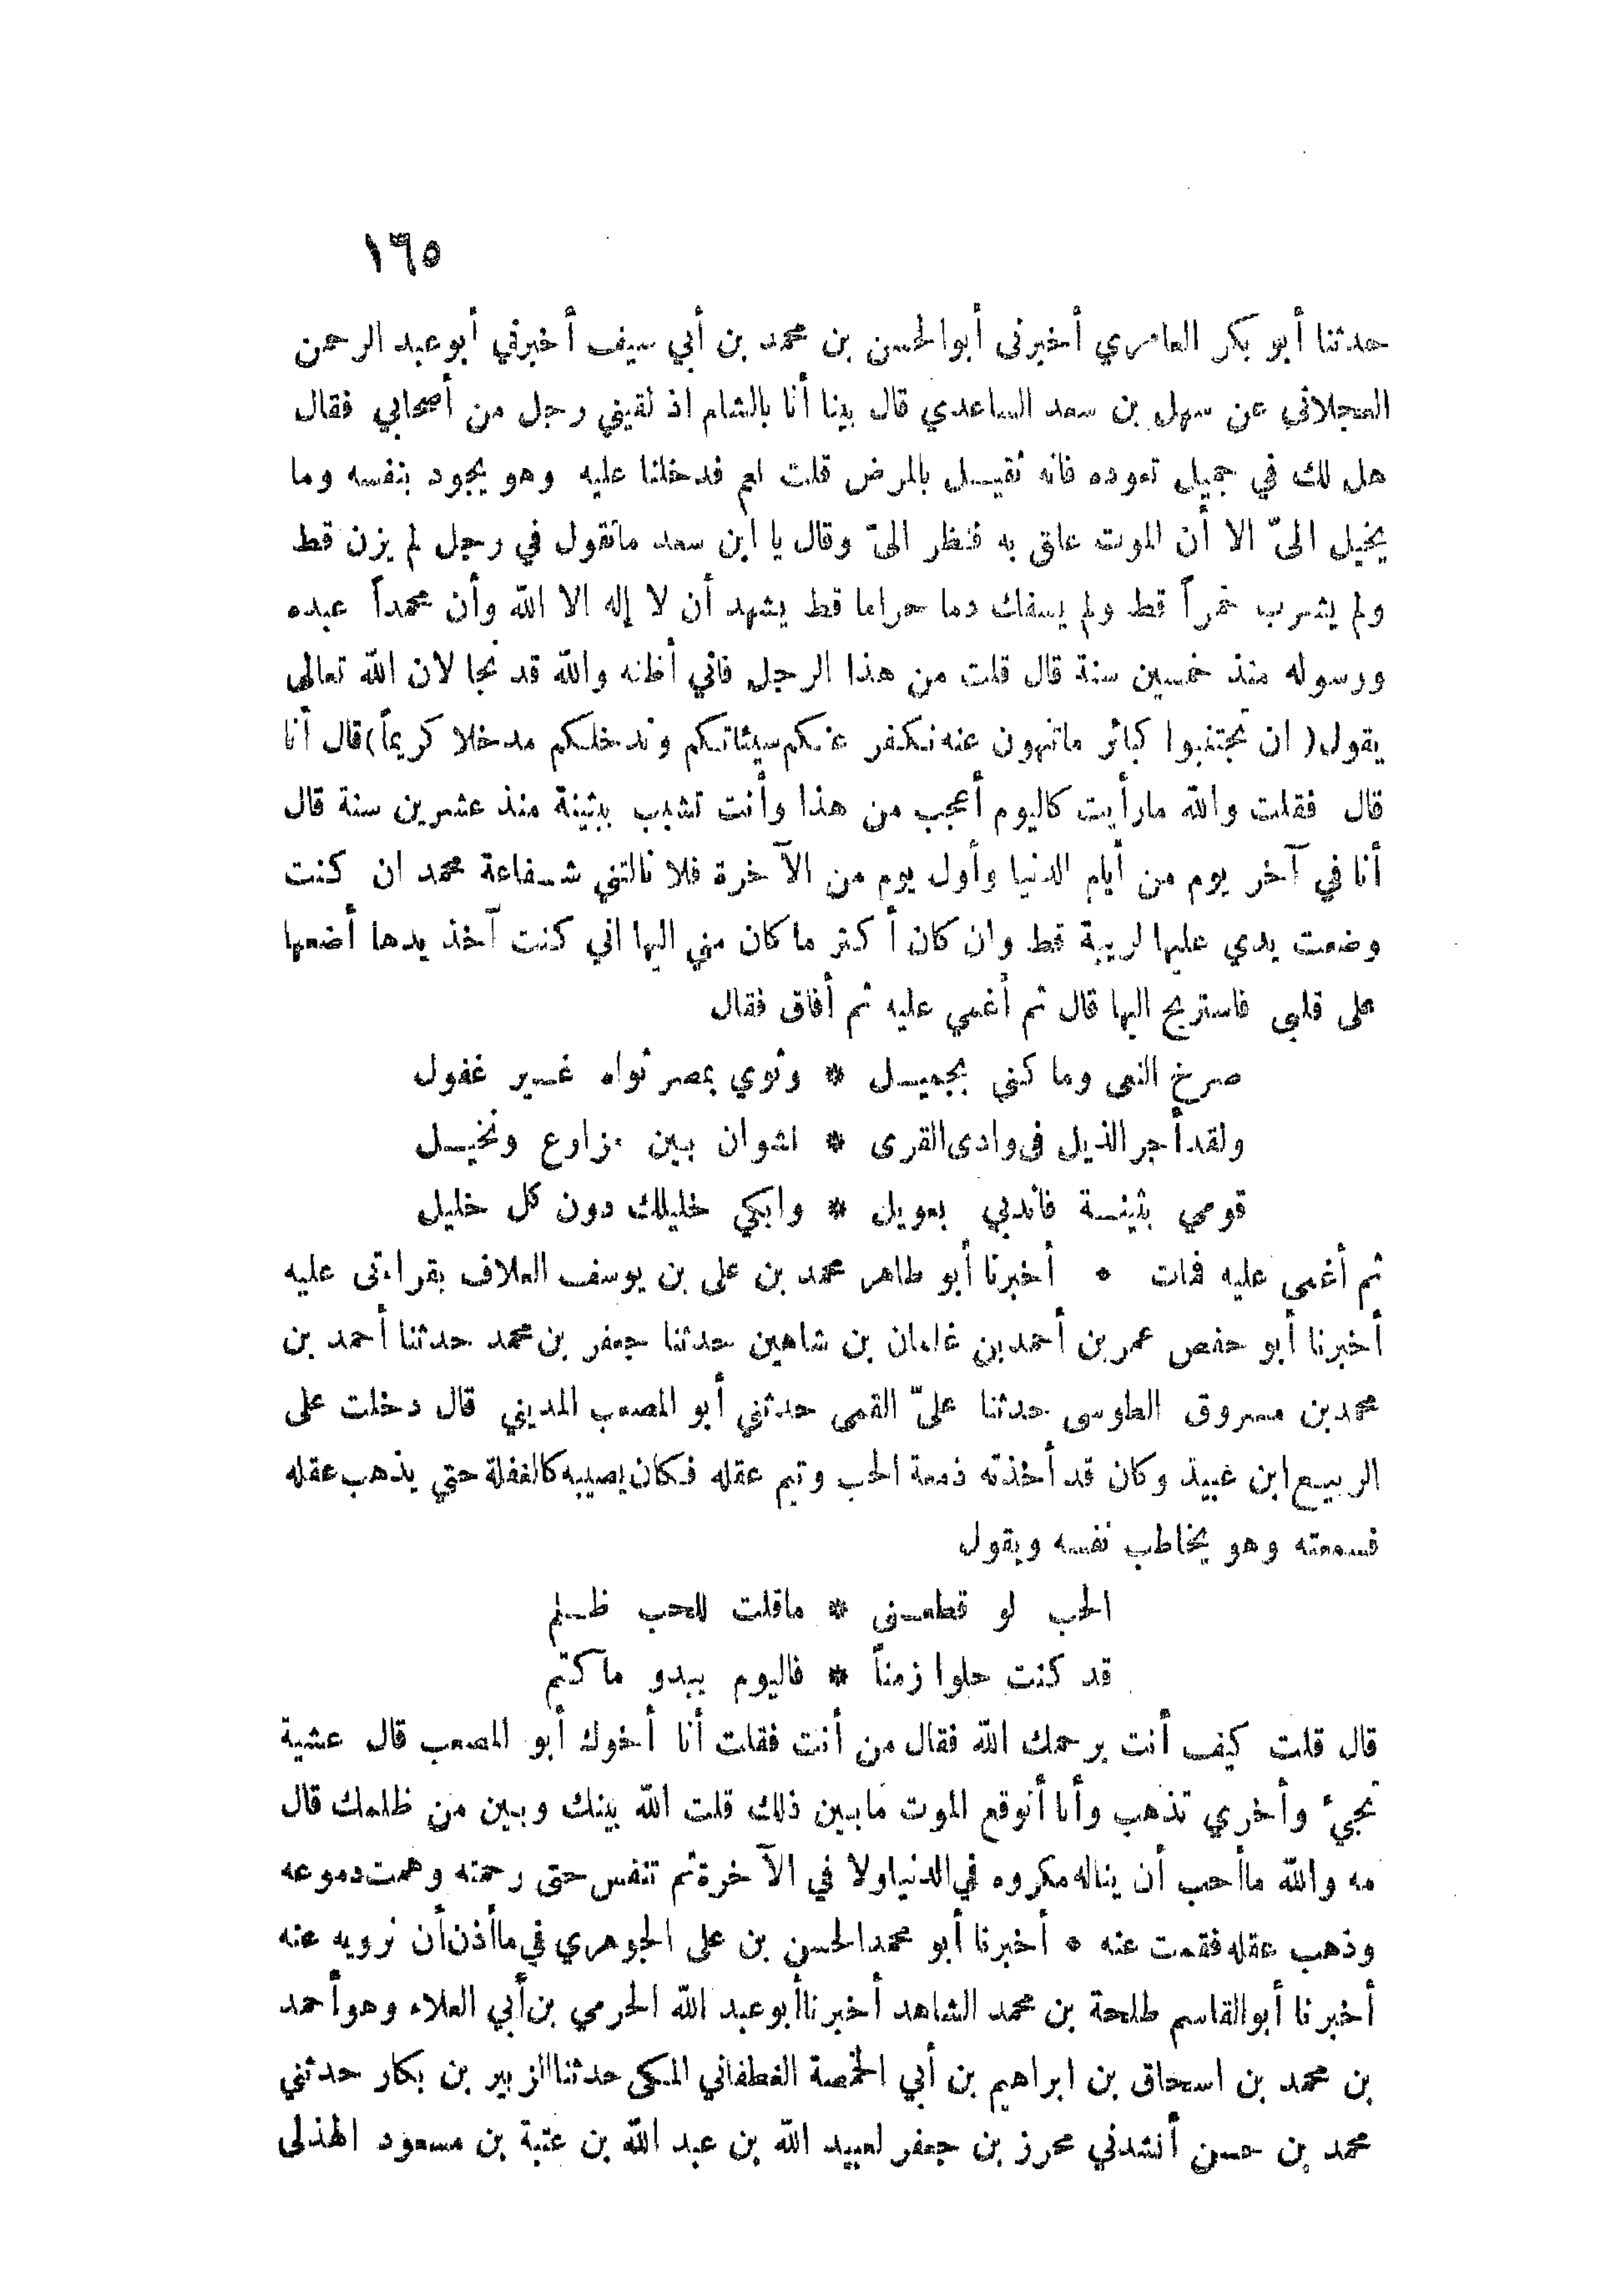 ١٦٥
حدثنا أبو بكر العامري أخبرنى أبو الحسن بن محمد بن أبي سيف أخبرني أبو عبد الرحمن
العجلاني عن سهل بن سعد الساعدي قال بينا أنا بالشام اذ لقيني رجل من أصحابي فقال
هل لك في جميل تعوده فانه ثقيل بالمرض قلت نعم فدخلنا عليه وهو يجود بنفسه وما
يخيل الىّ الا أن الموت عالق به فنظر الىّ وقال يا ابن سعد ماتقول في رجل لم يزن قط
ولم يشرب خمراً قط ولم يسفك دما حراما قط يشهد أن لا إله الا الله وأن محمداً عبده
ورسوله منذ خمسين سنة قال قلت من هذا الرجل فاني أظنه والله قد نجا لان الله تعالى
يقول ( ان تجتنبوا كبائر ماتنهون عنه نكفر عنكم سيئاتكم وندخلكم مدخلا كريماً) قال أنا
قال فقلت والله مارأيت كاليوم أعجب من هذا وأنت تشبب ببثينة منذ عشرين سنة قال
أنا في آخر يوم من أيام الدنيا وأول يوم من الآخرة فلا نالتني شفاعة محمد ان كنت
وضعت يدي عليها لريبة قط وان كان أكثر ما كان مني اليها اني كنت آخذ يدها أضعها
على قلبى فاستريح اليها قال ثم أغمي عليه ثم أفاق فقال
صرخ النعى وما كنى بجميل * وثوي بمصر ثواء غير غفول
ولقد أجر الذيل فى وادى القرى * نشوان بين مزارع ونخيل
قومي بثينة فاندبي بعويل * وابكي خليلك دون كل خليل
ثم أغمى عليه فمات * أخبرنا أبو طاهر محمد بن على بن يوسف العلاف بقراءتى عليه
أخبرنا أبو حفص عمر بن أحمد بن عثمان بن شاهين حدثنا جعفر بن محمد حدثنا أحمد بن
محمد بن مسروق الطوسى حدثنا علىّ القمى حدثني أبو المصعب المديني قال دخلت على
الربيع ابن عبيد وكان قد أخذته دمعة الحب وتيم عقله فكان يصيبه كالغفلة حتي يذهب عقله
فسمعته وهو يخاطب نفسه ويقول
الحب لو قطعنى * ماقلت للحب ظلم
قد كنت حلوا زمناً * فاليوم يبدو ما كتم
قال قلت كيف أنت يرحمك الله فقال من أنت فقلت أنا أخوك أبو المصعب قال عشية
تجيء وأخري تذهب وأنا أتوقع الموت مابين ذلك قلت الله بينك وبين من ظلمك قال
مه والله ماأحب أن يناله مكروه في الدنيا ولا في الآخرة ثم تنفس حتى رحمته وهمت دموعه
وذهب عقله فقمت عنه * أخبرنا أبو محمد الحسن بن على الجوهري في ماأذن أن نرويه عنه
أخبرنا أبو القاسم طلحة بن محمد الشاهد أخبرنا أبو عبد الله الحرمي بن أبي العلاء وهو أحمد
بن محمد بن اسحاق بن ابراهيم بن أبي الخمصة الغطفاني المكى حدثنا الزبير بن بكار حدثني
محمد بن حسن أنشدني محرز بن جعفر لعبيد الله بن عبد الله بن عتبة بن مسعود الهذلى